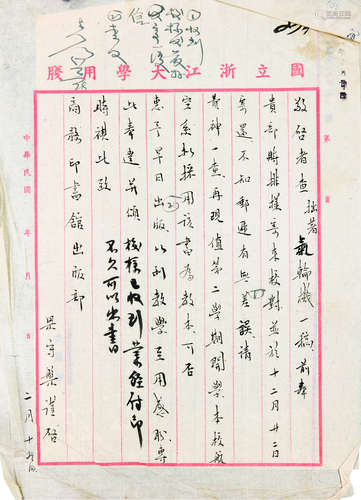 國立浙江大學用牋
敬啓者查拙著氣輪機一稿前奉
貴部時排樣寄來校對並於十二月廿二日
寄還不知郵遞有無差誤請
費神一查再現值第二學期開學本校航
空系擬採用該書為教本可否
惠予早日出版以利教學至用感盼專
此奉達并頌
時祺此致
商務印書館出版部
梁守槃謹啓
二月十
校樣已收到業經付印
不久可以出書
中華民國 年 月 日